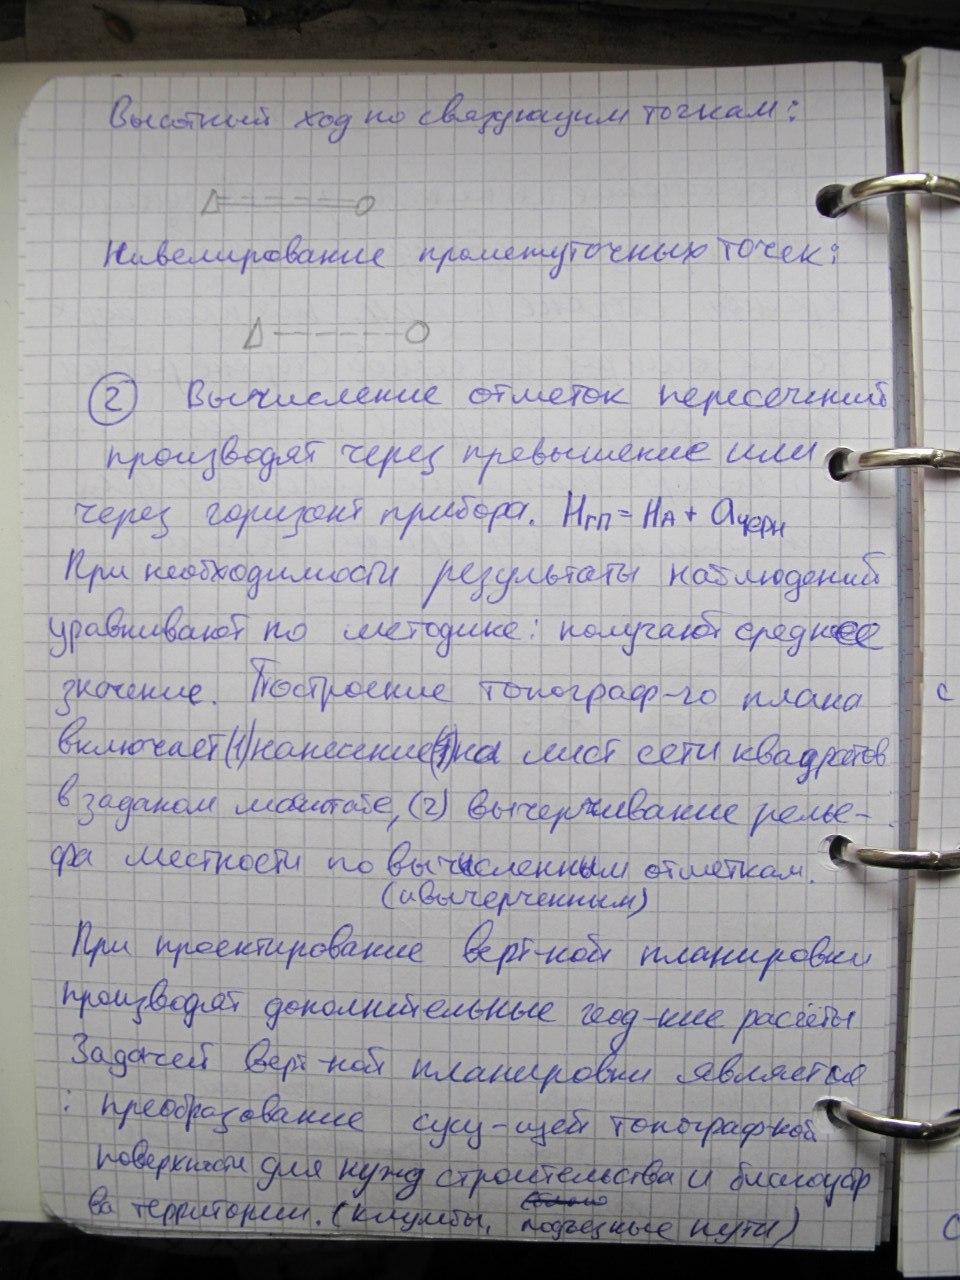 Высотный ход по связующим точкам:
Нивелирование промежуточных точек:
2 Вычисление отметок пересечений
производят через превышение или
через горизонт прибора. Hгп = HА + aчерн
При необходимости результаты наблюдений
уравнивают по методике: получают среднее
значение. Построение топограф-го плана
включает (1) нанесение на лист сети квадратов
в заданом масштабе, (2) вычерчивание релье-
фа местности по вычисленным отметкам.
(и вычерченным)
При проектирование верт-ной планировки
производят дополнительные геод-кие расчёты
Задачей верт-ной планировки является
: преобразование сущ-щей топограф-кой
поверхности для нужд строительства и благоустр
ва территории. (клумбы, подъездные пути)
с
с